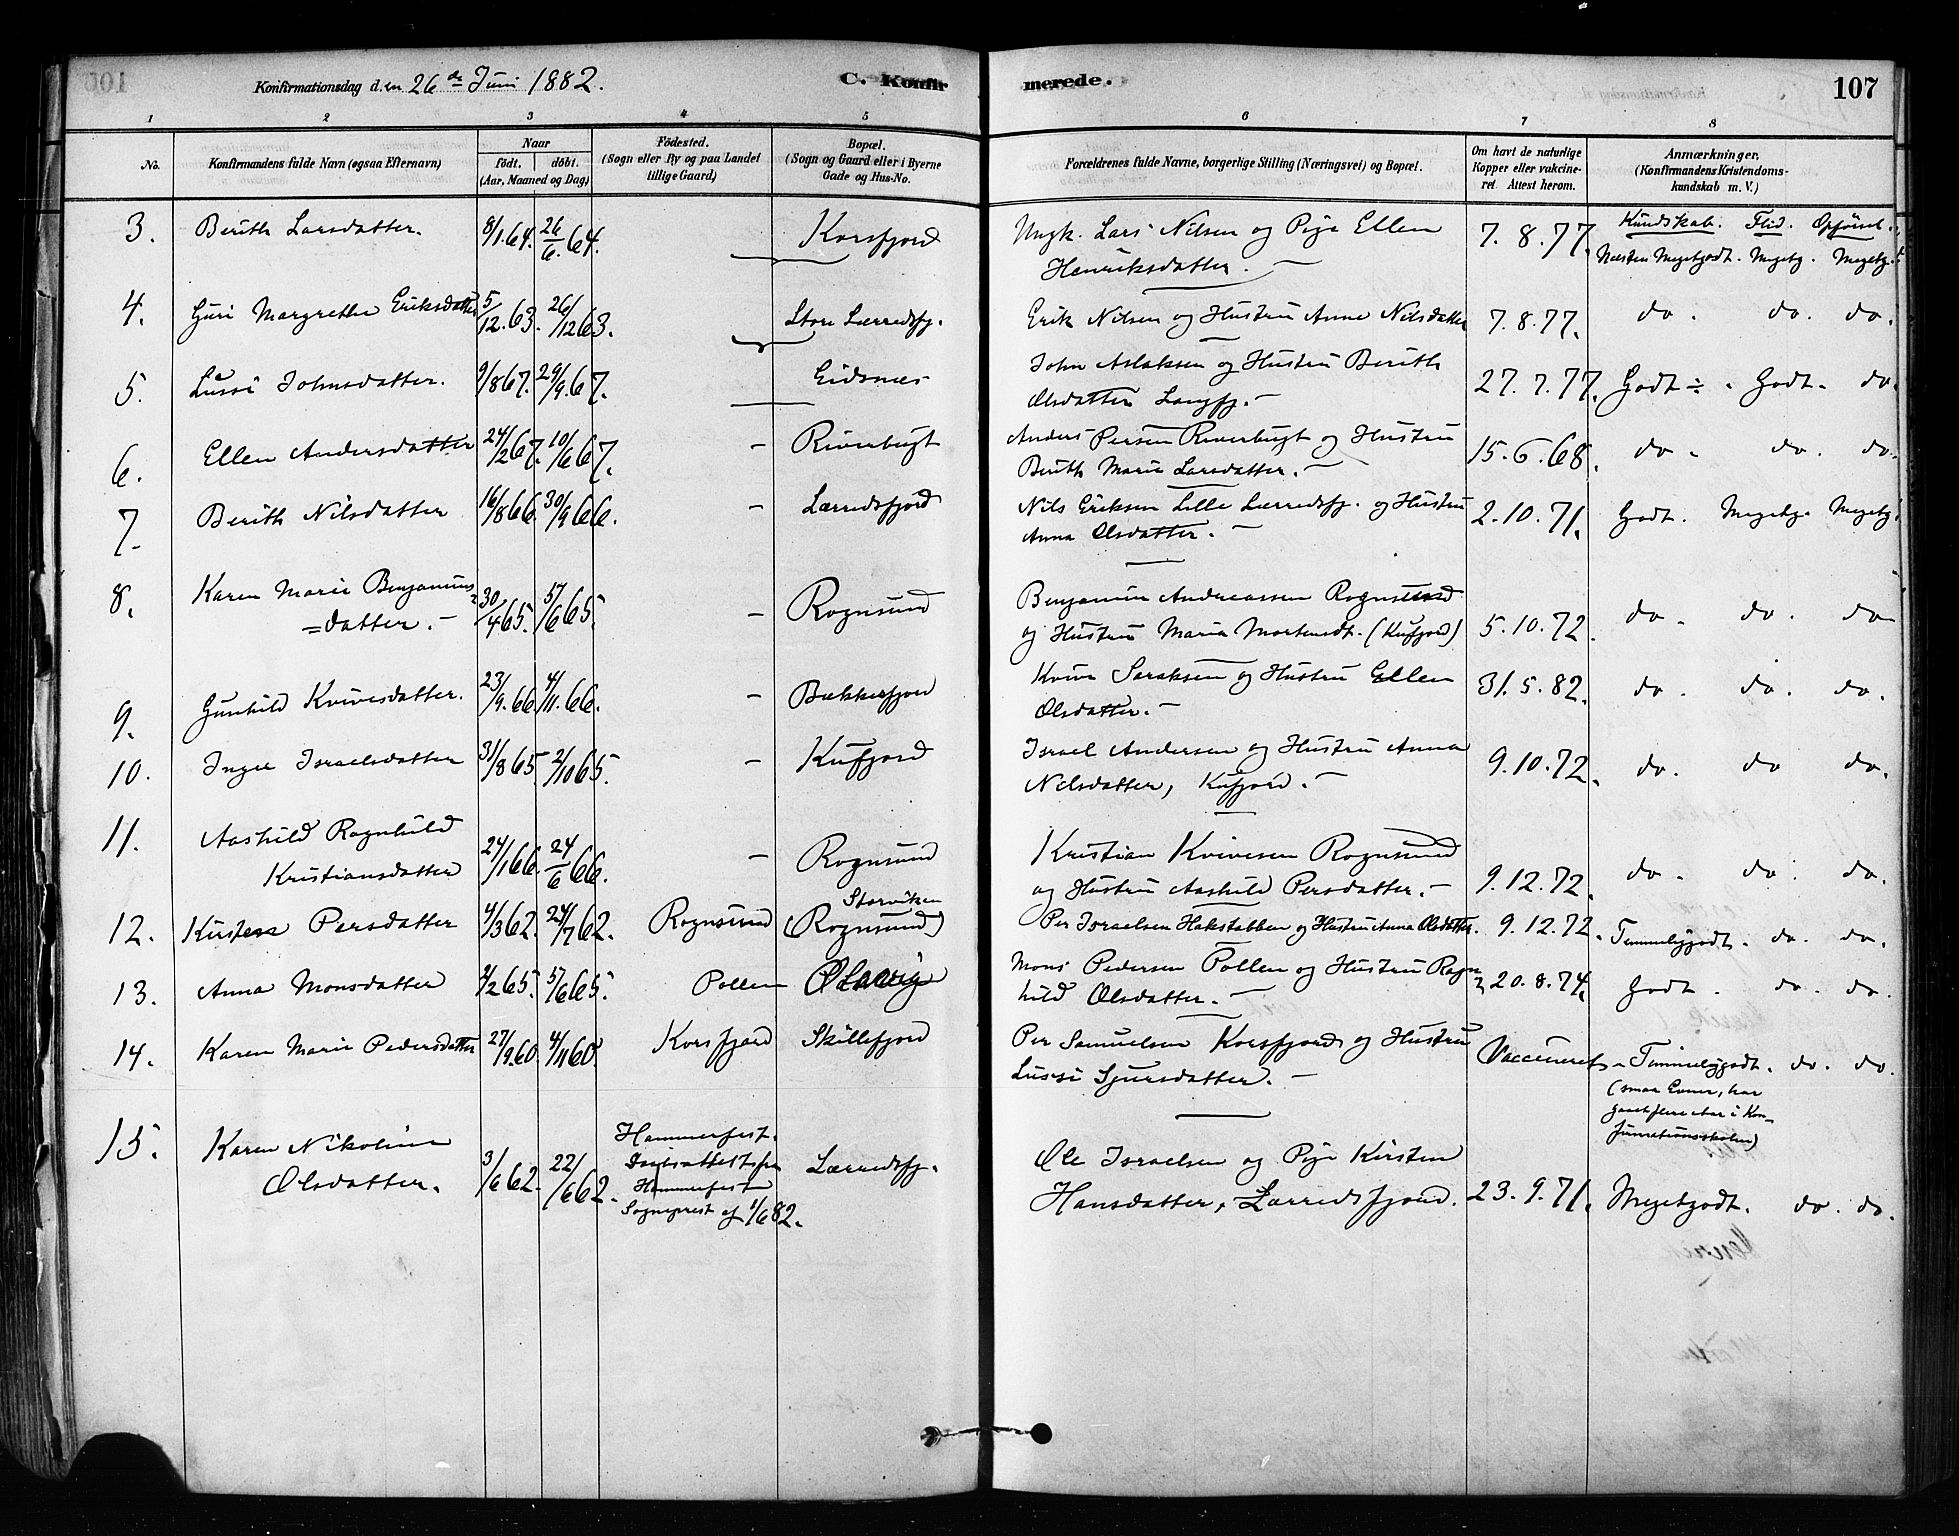 Konfirmationsdag d. en 26de Juni 1882.
C. Konfirmerede.
107
1 2 3 4 5 6 7 8
No.
Konfirmandens fulde Navn (ogsaa Efternavn)
Naar
født. døbt.
(Aar, Maaned og Dag)
Fødested.
(Sogn eller By og paa Landet
tillige Gaard)
Bopæl.
(Sogn og Gaard eller i Byerne
Gade og Hus-No.
Forældrenes fulde Navne, borgerlige Stilling (Næringsvei) og Bopæl.
Om havt de naturlige
Kopper eller vakcine-
ret. Attest herom.
Anmærkninger.
(Konfirmandens Kristendoms-
kundskab m. V.)
Kundskab. Flid. Opførsel.
3. Berith Larsdatter. 8/1.64. 26/6.64. Korsfjord Ungk. Lars Nilsen og Pige Ellen 7.8.77. Næsten Megetgodt. Megetg. Megetg.
Henriksdatter. —
4. Guri Margrethe Eriksdatter 5/12.63. 26/12 63. Store Lerredsfj. Erik Nilsen og Hustru Anne Nilsdatter 7.8.77. do. do. do.
5. Lussi Johnsdatter. 9/8 67. 29/9.67. Eidsnes John Aslaksen og Hustru Berith 27.7.77. Godt ÷. Godt. do.
Olsdatter Langfj. —
6. Ellen Andersdatter 24/2 67. 10/6 67. - Riverbugt Anders Persen Riverbugt og Hustru 15.6.68. do. do. do.
Berith Marie Larsdatter. —
7. Berith Nilsdatter 16/8 66. 30/9 66. - Lerredsfjord Nils Eriksen Lille Lerredsfj. og Hustru 2.10.71. Godt. Megetg. Megetg.
Anna Olsdatter. —
8. Karen Marie Benjamins- 30/4 65. 5/6 65. - Rognsund Benjamin Andreassen Rognsund 5.10.72. do. do. do
=datter. — og Hustru Maria Mortensdt. (Kufjord)
9. Gunhild Kvivesdatter. 23/9.66. 4/11.66. - Bekkerfjord Kvive Saraksen og Hustru Ellen 31.5.82. do. do. do.
Olsdatter. —
10. Inger Israelsdatter 31/8 65. 2/10 65. - Kufjord Israel Andersen og Hustru Anna 9.10.72. do. do do.
Nilsdatter, Kufjord. —
11. Aashild Ragnhild
Kristiansdatter 24/1 66. 24/6 66. - Rognsund Kristian Kvivesen Rognsund 9.12.72. do. do. do.
og Hustru Aashild Persdatter. —
12. Kirsten Persdatter 4/3 62. 24/7 62. Rognsund Storviken
(Rognsund) Per Israelsen Hakstabben og Hustru Anna Olsdatter. 9.12.72. Temmeliggodt. do. do.
13. Anna Monsdatter 2/2 65. 5/6 65. Pollen Mons Pedersen Pollen og Hustru Ragn- 20.8.74. Godt. do. do.
hild Olsdatter. —
14. Karen Marie Pedersdatter 27/9.60. 4/11 60. Korsfjord Skillefjord Per Samuelsen Korsfjord og Hustru Vaccineret Temmeliggodt. do. do.
Lussi Sjursdatter. — (smaa Evner, har
gaaet flere Aar i Kon-
firmationsskolen)
15. Karen Nikoline
Olsdatter. 3/6 62. 22/6 62. Hammerfest.
Daabsattest fra
Hammerfest
Sogneprest af 1/6 82. Lerredsfj. Ole Israelsen og Pige Kirsten
Hansdatter, Lerredsfjord. 23.9.71. Megetgodt. do. do.